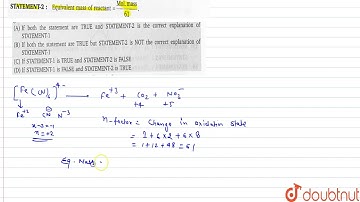 STATEMENT-2 : Equivalent mass of reactant = Mol. mass / 61
[A] If both the statement are TRUE and STATEMENT-2 is the correct explanation of
STATEMENT-1
(B) If both the statement are TRUE but STATEMENT-2 is NOT the correct explanation of
STATEMENT-1
(C) If STATEMENT-1 is TRUE and STATEMENT-2 is FALSE
(D) If STATEMENT-1 is FALSE and STATEMENT-2 is TRUE
[Fe(CN)6]4- → Fe+3 + CO2 + NO3-
+4 +5
Fe+2 CN N-3
x-3=-1
x=+2
n-factor = Change in oxidation state
= 1+6×2+6×8
= 1+12+48=61
Eq. Mass =
doubtnut